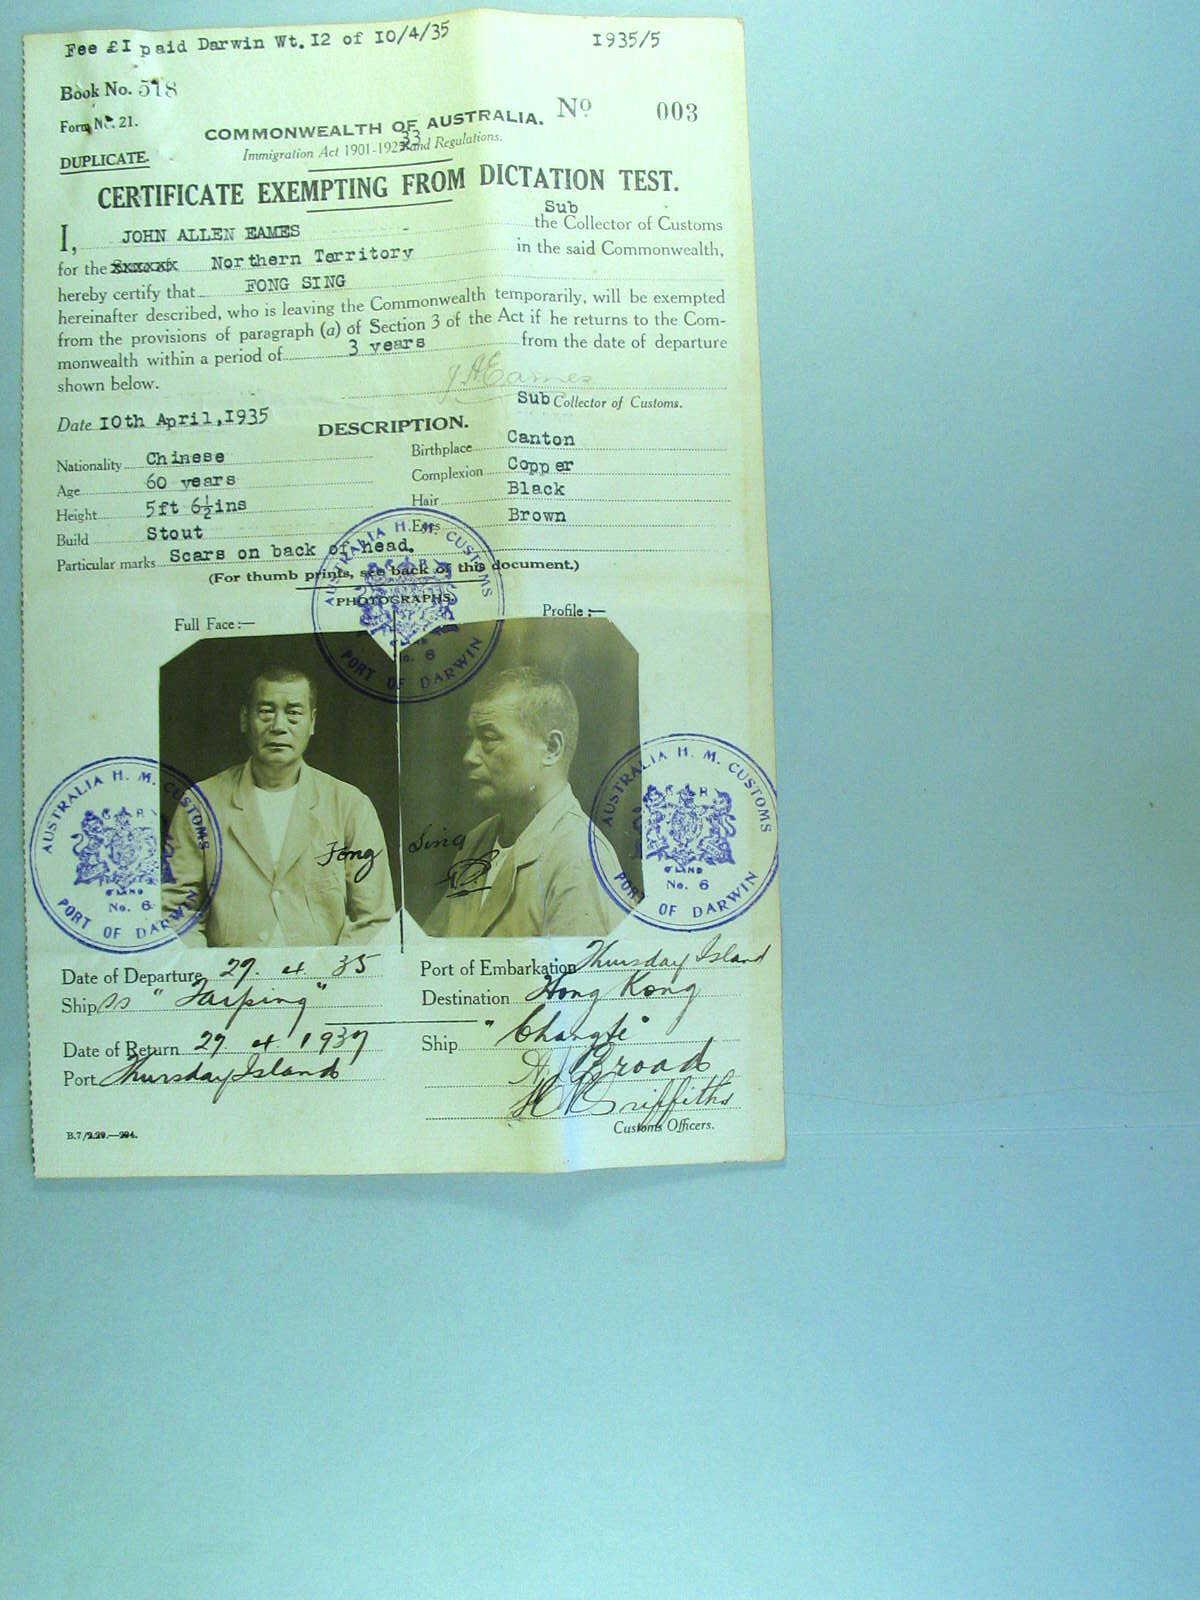 Fee £1 paid Darwin Wt. 12 of 10/4/35 1935/5
Book No. 518
Form No. 21.
COMMONWEALTH OF AUSTRALIA. No 003
Immigration Act 1901-1933 and Regulations.
DUPLICATE.
CERTIFICATE EXEMPTING FROM DICTATION TEST.
I, JOHN ALLEN EAMES Sub the Collector of Customs
for the Northern Territory in the said Commonwealth,
hereby certify that FONG SING
hereinafter described, who is leaving the Commonwealth temporarily, will be exempted
from the provisions of paragraph (a) of Section 3 of the Act if he returns to the Com-
monwealth within a period of 3 years from the date of departure
shown below.
J A Eames
Sub Collector of Customs.
Date 10th April, 1935
DESCRIPTION.
Nationality Chinese Birthplace Canton
Age 60 years Complexion Copper
Height 5ft 6½ins Hair Black
Build Stout Eyes Brown
Particular marks Scars on back of head.
(For thumb prints, see back of this document.)
PHOTOGRAPHS.
Full Face :— Profile :—
AUSTRALIA H. M. CUSTOMS
No. 6
PORT OF DARWIN
AUSTRALIA H. M. CUSTOMS
No. 6
PORT OF DARWIN
AUSTRALIA H. M. CUSTOMS
No. 6
PORT OF DARWIN
Fong Sing
Date of Departure 29. 4. 35 Port of Embarkation Thursday Island
Ship SS "Taiping" Destination Hong Kong
Date of Return 29 4 1937 Ship "Changte"
Port Thursday Island A J Broad
Griffiths
Customs Officers.